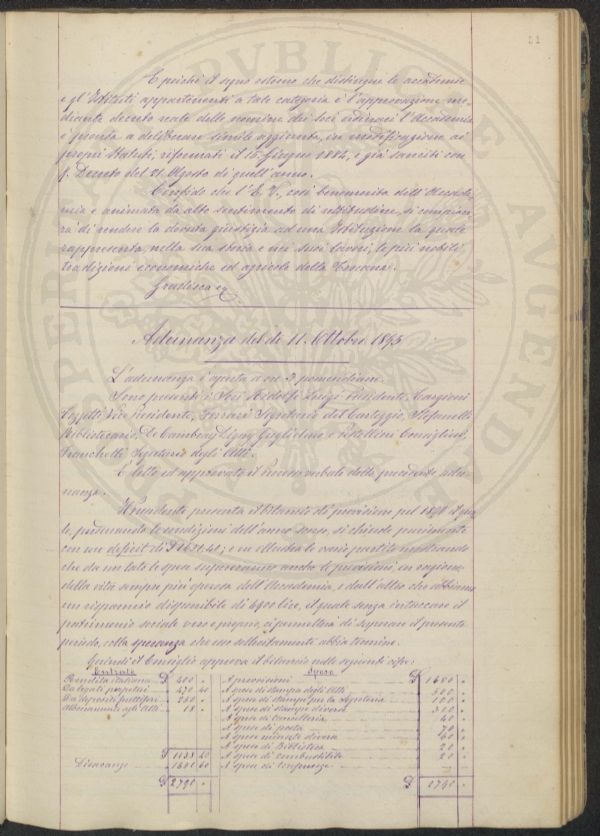 21
E poiché il segno esterno che distingue le accademie
e gl'Istituti appartenenti a tale categoria è l'approvazione me-
diante decreto reale delle nomine dei soci ordinari l'Accademia
è pronta a deliberare simile aggiunta, in modificazione ai
propri Statuti, riformati il 15 Giugno 1884, e già sanciti con
R. Decreto del 21 Agosto di quell'anno.
Confido che l'E. V., così benemerita dell'Accade-
mia e animata da alto sentimento di rettitudine, si compiac-
rà di rendere la dovuta giustizia ad una Istituzione la quale
rappresenta nella sua storia e nei suoi lavori, le più nobili
tradizioni economiche ed agricole della Toscana.
Gradisca
Adunanza del dì 11 Ottobre 1895
L'adunanza è aperta a ore 3 pomeridiane.
Sono presenti i Presidente, Targioni
Tozzetti Vice Presidente, Segretario del Carteggio, Stefanelli
Bibliotecario, De Cambray Digny Guglielmo e Pestellini Consiglieri,
Franchetti Segretario degli Atti.
È letto ed approvato il processo verbale della precedente adu-
nanza.
Il presidente, presenta il bilancio di previsione pel 1896 il qua-
le, permanendo le condizioni dell'anno scorso, si chiude parimente
con un deficit di e ne illustra le varie partite mostrando
che da un lato le spese supereranno anche le previsioni, in ragione
della vita sempre più operosa dell'Accademia, e dall'altro che abbiamo
un risparmio disponibile di 6900 lire, il quale senza intaccare il
patrimonio sociale vero e proprio, ci permetterà di superare il presente
periodo, colla speranza che esso sollecitamente abbia termine.
Quindi il Consiglio approva il bilancio nelle seguenti cifre:
Entrata Spesa
Rendita italiana £ 400 - A provvisioni £ 1600 -
470 40 A spese di stampa degli Atti 500 -
Da depositi fruttiferi 250 - A spese di stampe per la segreteria 100 -
Abbonamenti agli Atti 18 - A spese di stampe diverse 300 -
A spese di cancelleria 40 -
A spese di posta 70 -
A spese minute diverse 60 -
A spese di Biblioteca 20 -
£ 1138 40 A spese di combustibile 20 -
Disavanzo 60 A spese di
£ 2790 - £ 2790 -